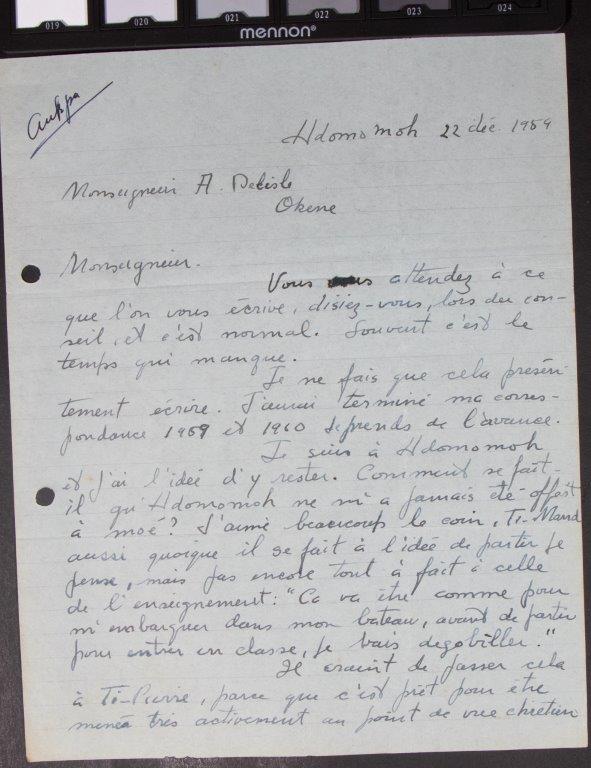 019 020 021 022 023 024
mennon®
Ankpa
Hdomomoh 22 déc. 1959
Monseigneur A. Delisle
Okene
Monseigneur.
Vous attendez à ce
que l'on vous écrive, disiez-vous, lors du con-
seil, et c'est normal. Souvent c'est le
temps qui manque.
Je ne fais que cela présen
tement écrire. J'aurai terminé ma corres-
pondance 1959 et 1960 de l'avance.
Je suis à Hdomomoh
et j'ai l'idée d'y rester. Comment se fait-
il qu'Hdomomoh ne m'a jamais été offert
à moé? J'aime beaucoup le coin, Ti-Mand
aussi quoique il se fait à l'idée de partir je
pense, mais pas encore tout à fait à celle
de l'enseignement: "Ca va être comme pour
m'embarquer dans mon bateau, avant de partir
pour entrer en classe, je vais dégobiller."
Il craint de passer cela
à Ti-Pierre, parce que c'est prêt pour être
mené très activement au point de vue chrétien